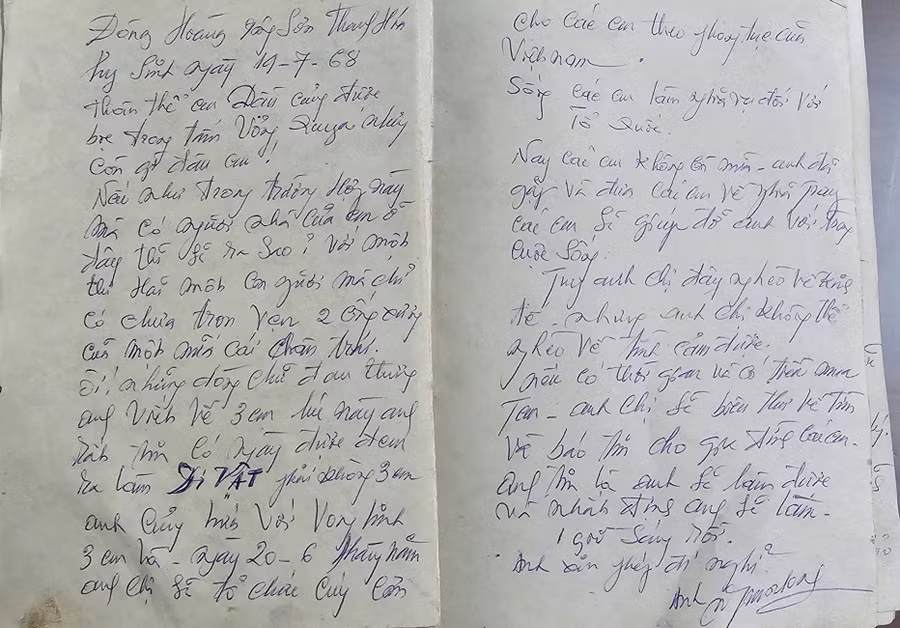 Đồng Hoàng Hồng Sơn Thanh Hóa
hy sinh ngày 19-7-68
thân thể em Dầu cũng được
bọc trong tấm Võng Quyện nhưng
còn gì đâu em!
Nếu như trong trường hợp này
mà có người nhà của em ở
đây thì sẽ ra sao? với một
thi Hài một con người mà chỉ
có chưa trọn vẹn 2 ống xương
của một mẩu cái chân trái.
Ôi! những dòng chữ đau thương
anh viết về 3 em lúc này anh
có ngày được đem
ra làm DI VẬT phải không 3 em
anh cũng hứa với Vong linh
3 em là - ngày 20-6 hằng năm
anh chị sẽ tổ chức cúng
cho các em theo phong tục của
Việt nam.
Sống các em làm nghĩa vụ đối với
Tổ Quốc.
Nay các em không còn nữa - anh đã
gặp và đưa các em về
các em sẽ giúp đỡ anh với trong
cuộc sống.
Tuy anh chị đây nghèo về kinh
tế - nhưng anh chị không thể
nghèo về tình cảm được.
nếu có thời gian và có
anh chị sẽ biên thư về Tìm
và báo tin cho gia đình các em.
anh tin là anh sẽ làm được
và nhất định anh sẽ làm -
1 giờ sáng rồi.
Anh xin phép đi nghỉ
Anh